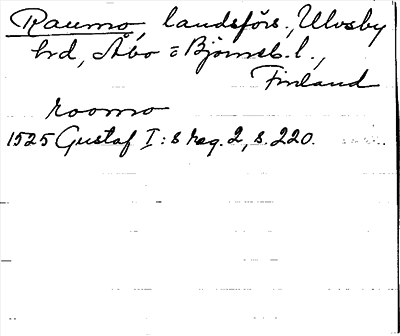 Raumo, landsförs., Ulvsby
hrd, Åbo = Björneb. l.,
Finland
roomo
1525 Gustaf I:s reg. 2, s. 220.